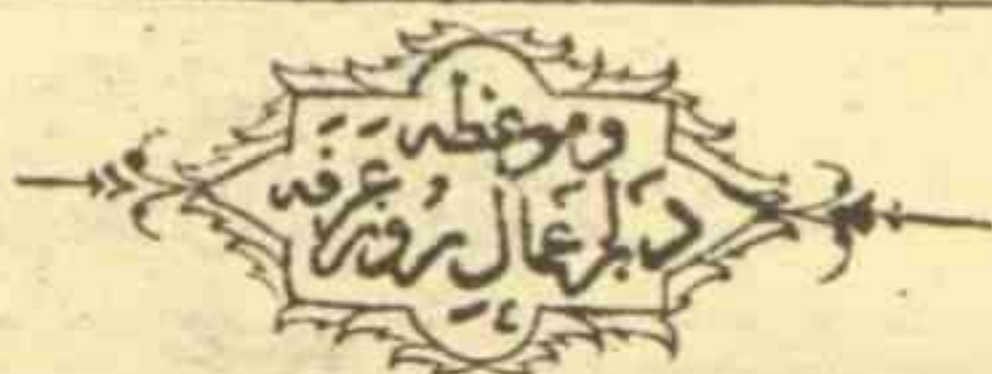 و موعظه
دَر اعَمالِ رُوز عَرَفه